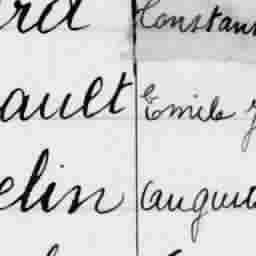 ard Constant
ault Emile J
elin Auguste